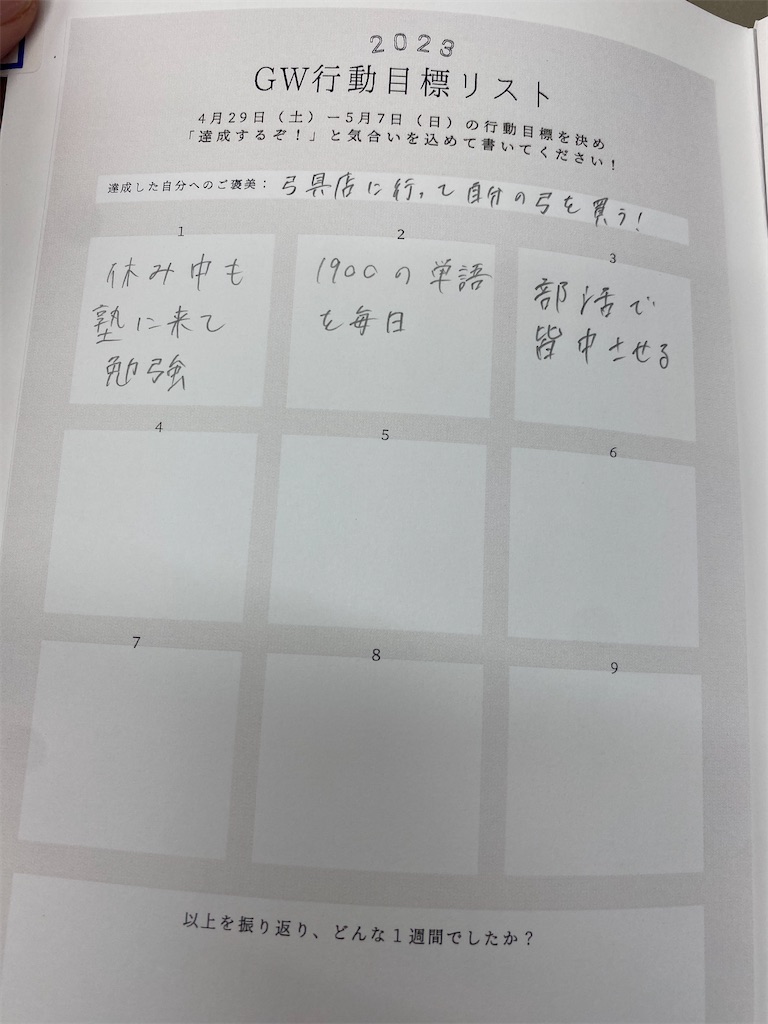 2023
GW行動目標リスト
4月29日（土）ー5月7日（日）の行動目標を決め
「達成するぞ！」と気合いを込めて書いてください！
達成した自分へのご褒美：弓具店に行って自分の弓を買う！
1
休み中も
塾に来て
勉強
2
1900の単語
を毎日
3
部活で
皆中させる
4
5
6
7
8
9
以上を振り返り、どんな1週間でしたか？